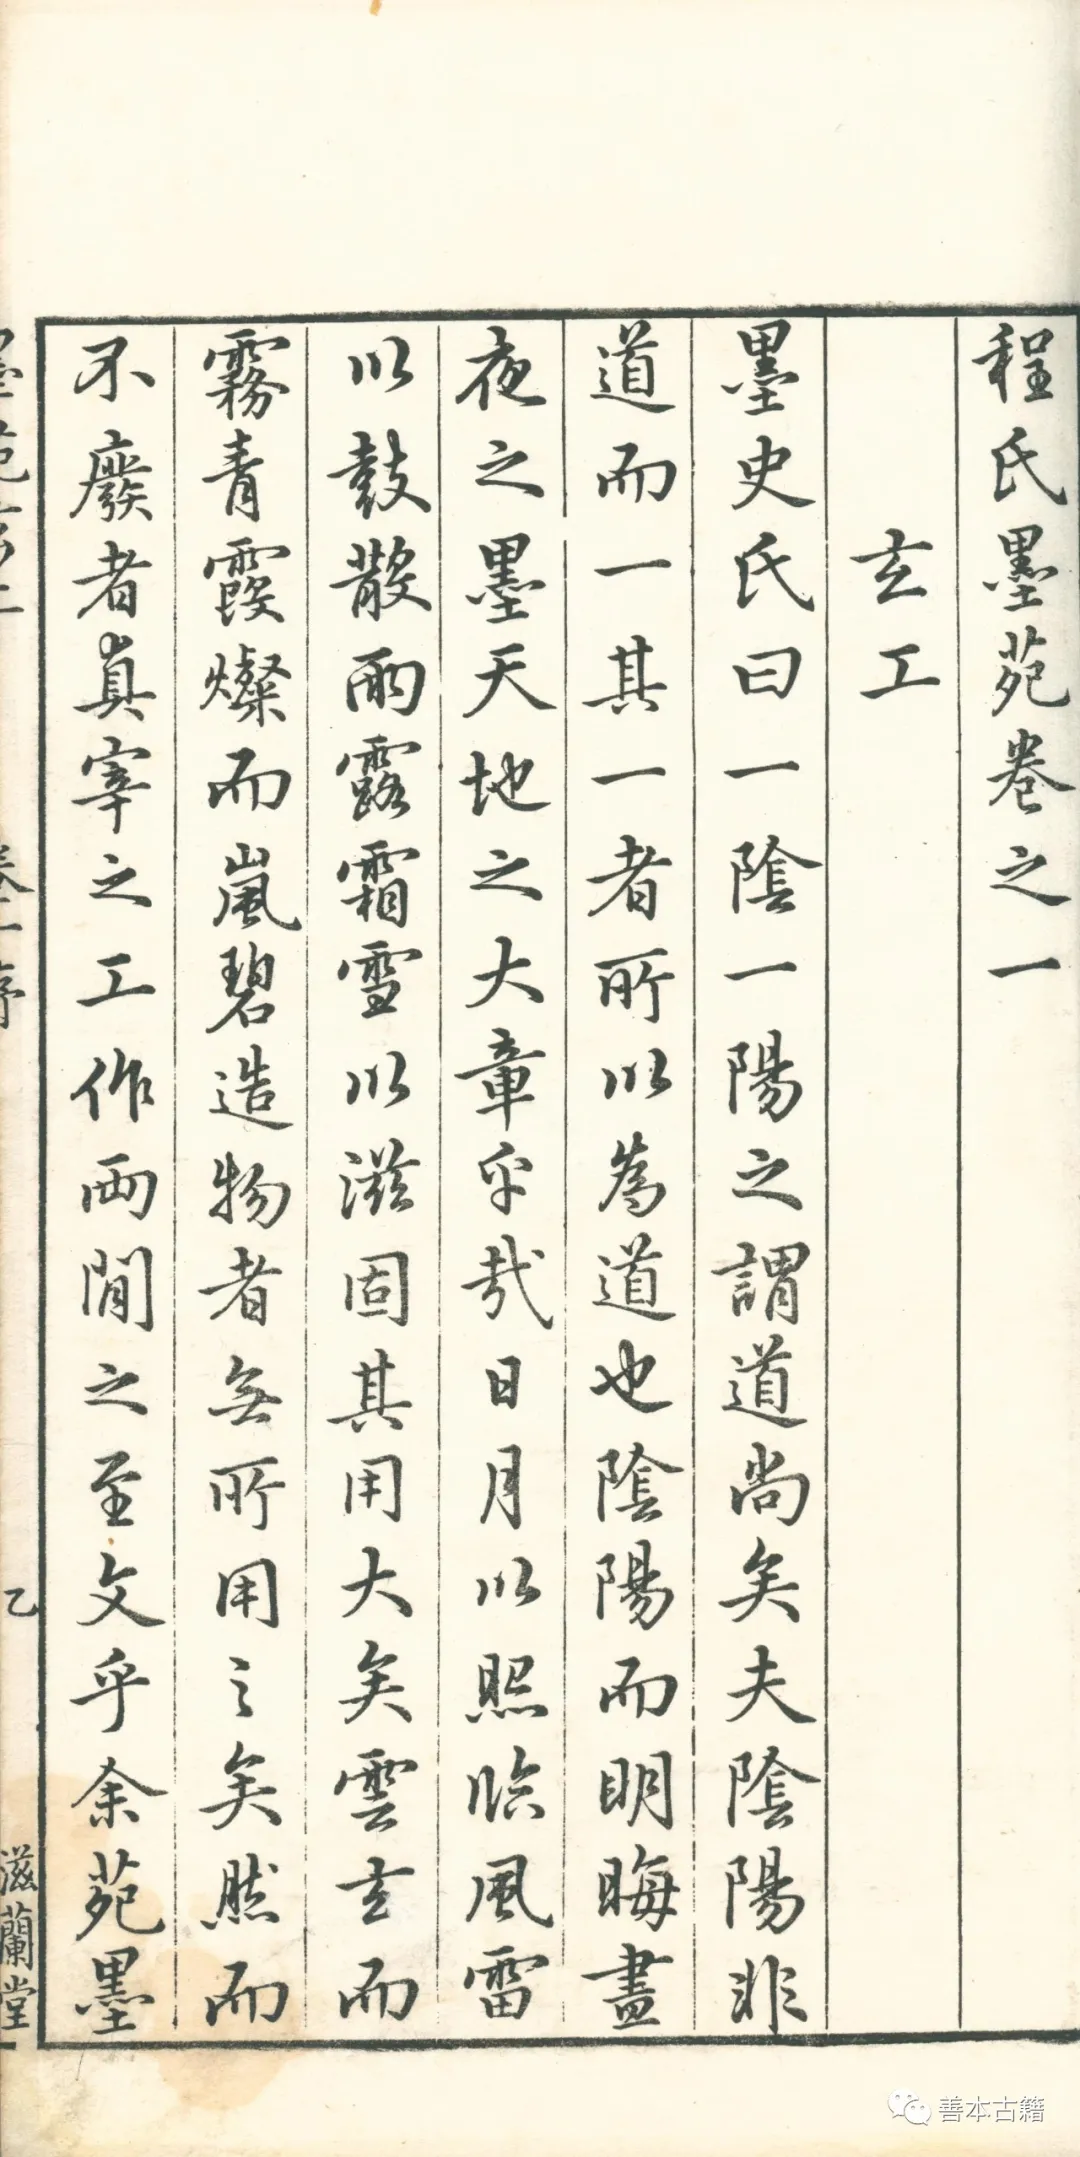 程氏墨苑卷之一
玄工
墨史氏曰一陰一陽之謂道尚矣夫陰陽非
道而一其一者所以為道也陰陽而明晦晝
夜之墨天地之大章乎哉日月以照臨風雷
以鼓散雨露霜雪以滋固其用大矣雲玄而
霧青霞燦而嵐碧造物者無所用之矣然而
不廢者真宰之工作兩閒之至文乎余苑墨
乙
滋蘭堂
善本古籍